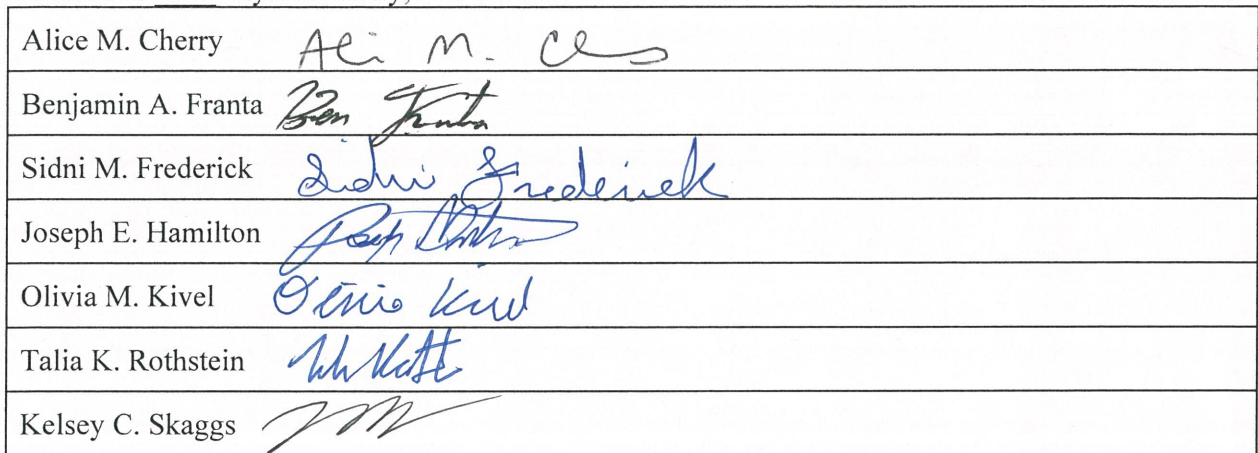 Alice M. Cherry Ali M. Ch
Benjamin A. Franta Ben Franta
Sidni M. Frederick Sidni Frederick
Joseph E. Hamilton
Olivia M. Kivel Olivia Kivel
Talia K. Rothstein
Kelsey C. Skaggs